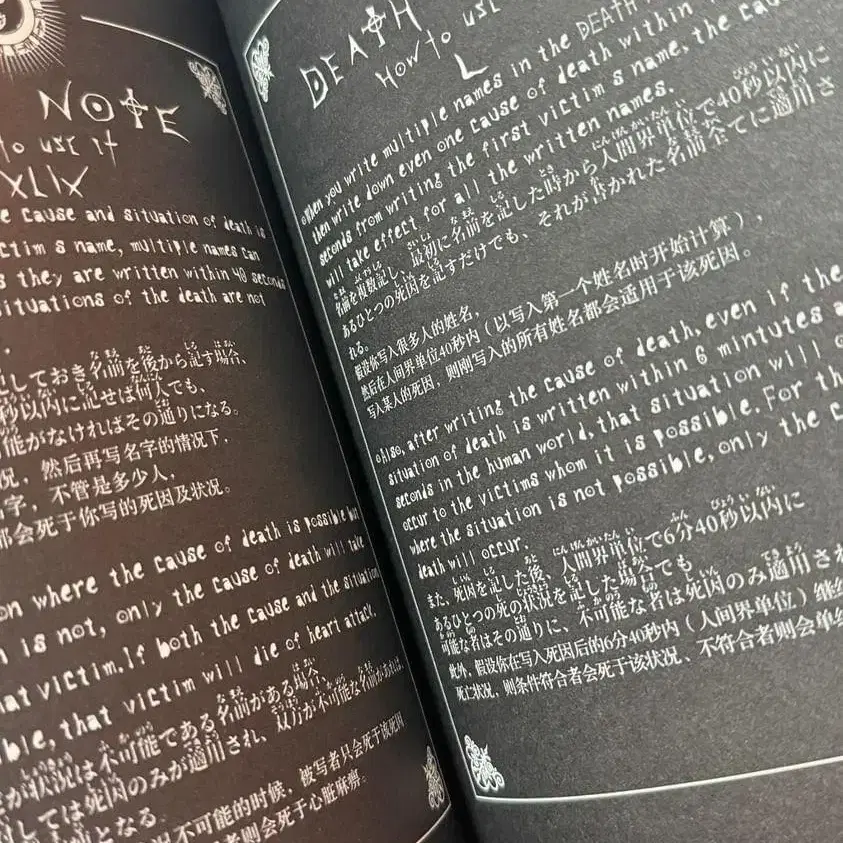 NOTE
to use it
XLIX
e cause and situation of death is
ctim s name, multiple names can
s they are written within 40 seconds
ituations of the death are not
しておき名前を後から記す場合、
秒以内に記せば何人でも、
可能がなければその通りになる。
况，然后再写名字的情况下，
名字，不管是多少人，
都会死于你写的死因及状况。
on where the cause of death is possible but
n is not, only the cause of death will take
hat victim. If both the cause and the situation
ible, that victim will die of heart attack.
が状況は不可能である名前がある場合、
しては死因のみが適用され、双方が不可能な名前があれば、
となる。
况不可能的时候，被写者只会死于该死因
者则会死于心脏麻痹。
DEATH
How to use
L
When you write multiple names in the DEATH
then write down even one cause of death within
seconds from writing the first victim s name, the cause
will take effect for all the written names.
名前を複数記し、最初に名前を記した時から人間界単位で40秒以内に
あるひとつの死因を記すだけでも、それが書かれた名前全てに適用さ
れる。
假设你写入很多人的姓名，
然后在人间界单位40秒内（以写入第一个姓名时开始计算），
写入某人的死因，则刚写入的所有姓名都会适用于该死因。
Also, after writing the cause of death, even if the
situation of death is written within 6 mintutes a
seconds in the human world, that situation will o
occur to the victims whom it is possible. For th
where the situation is not possible, only the c
death will occur.
また、死因を記した後、人間界単位で6分40秒以内に
あるひとつの死の状況を記した場合でも
可能な者はその通りに、不可能な者は死因のみ適用され
此外，假设你在写入死因后的6分40秒内（人间界单位）继续
死亡状况，则条件符合者会死于该状况、不符合者则会单纯